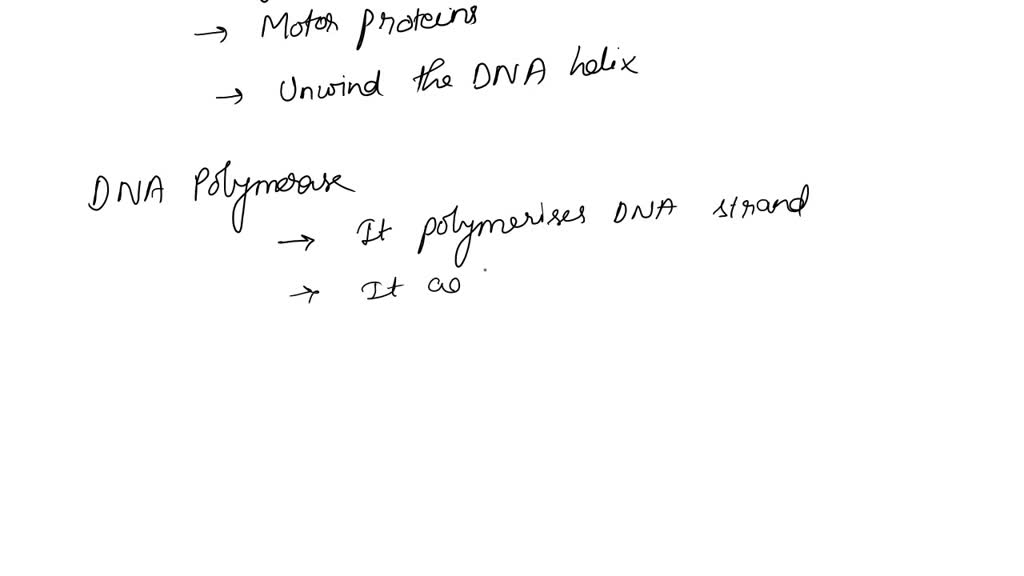 → Motor proteins
→ Unwind the DNA helix
DNA Polymerase
→ It polymerises DNA strand
→ It ao